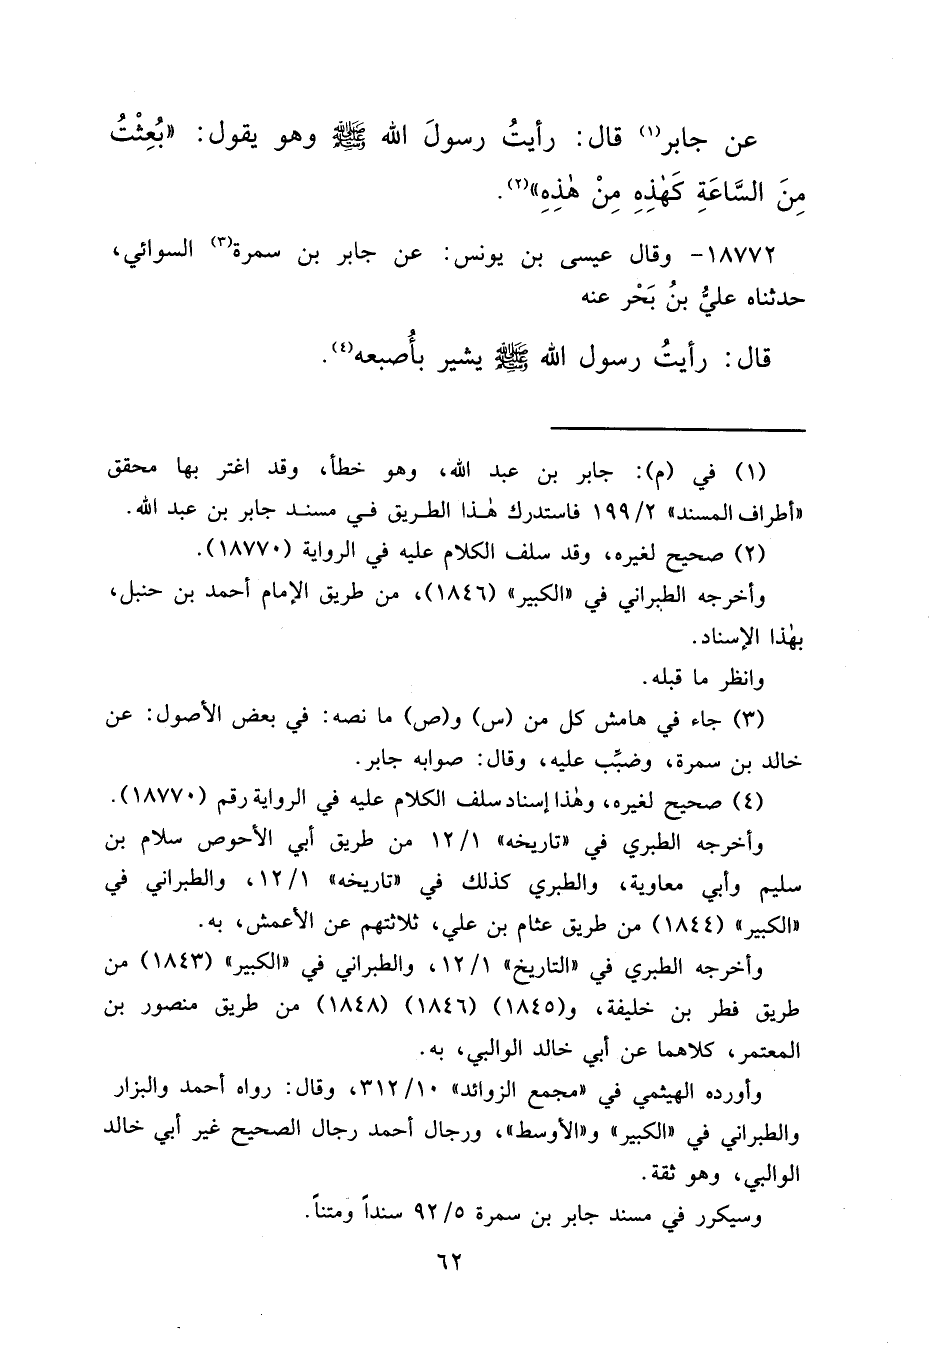 عن جابر(١) قال: رأيتُ رسولَ الله ﷺ وهو يقول: «بُعِثْتُ
مِنَ السَّاعَةِ كَهٰذِهِ مِنْ هٰذِهِ»(٢).
١٨٧٧٢- وقال عيسى بن يونس: عن جابر بن سمرة(٣) السوائي،
حدثناه عليُّ بنُ بَحْر عنه
قال: رأيتُ رسول الله ﷺ يشير بأُصبعه(٤).
(١) في (م): جابر بن عبد الله، وهو خطأ، وقد اغتر بها محقق
«أطراف المسند» ١٩٩/٢ فاستدرك هٰذا الطريق في مسند جابر بن عبد الله.
(٢) صحيح لغيره، وقد سلف الكلام عليه في الرواية (١٨٧٧٠).
وأخرجه الطبراني في «الكبير» (١٨٤٦)، من طريق الإمام أحمد بن حنبل،
بهٰذا الإسناد.
وانظر ما قبله.
(٣) جاء في هامش كل من (س) و(ص) ما نصه: في بعض الأصول: عن
خالد بن سمرة، وضبِّب عليه، وقال: صوابه جابر.
(٤) صحيح لغيره، وهٰذا إسناد سلف الكلام عليه في الرواية رقم (١٨٧٧٠).
وأخرجه الطبري في «تاريخه» ١٢/١ من طريق أبي الأحوص سلام بن
سليم وأبي معاوية، والطبري كذلك في «تاريخه» ١٢/١، والطبراني في
«الكبير» (١٨٤٤) من طريق عثام بن علي، ثلاثتهم عن الأعمش، به.
وأخرجه الطبري في «التاريخ» ١٢/١، والطبراني في «الكبير» (١٨٤٣) من
طريق فطر بن خليفة، و(١٨٤٥) (١٨٤٦) (١٨٤٨) من طريق منصور بن
المعتمر، كلاهما عن أبي خالد الوالبي، به.
وأورده الهيثمي في «مجمع الزوائد» ٣١٢/١٠، وقال: رواه أحمد والبزار
والطبراني في «الكبير» و«الأوسط»، ورجال أحمد رجال الصحيح غير أبي خالد
الوالبي، وهو ثقة.
وسيكرر في مسند جابر بن سمرة ٩٢/٥ سنداً ومتناً.
٦٢